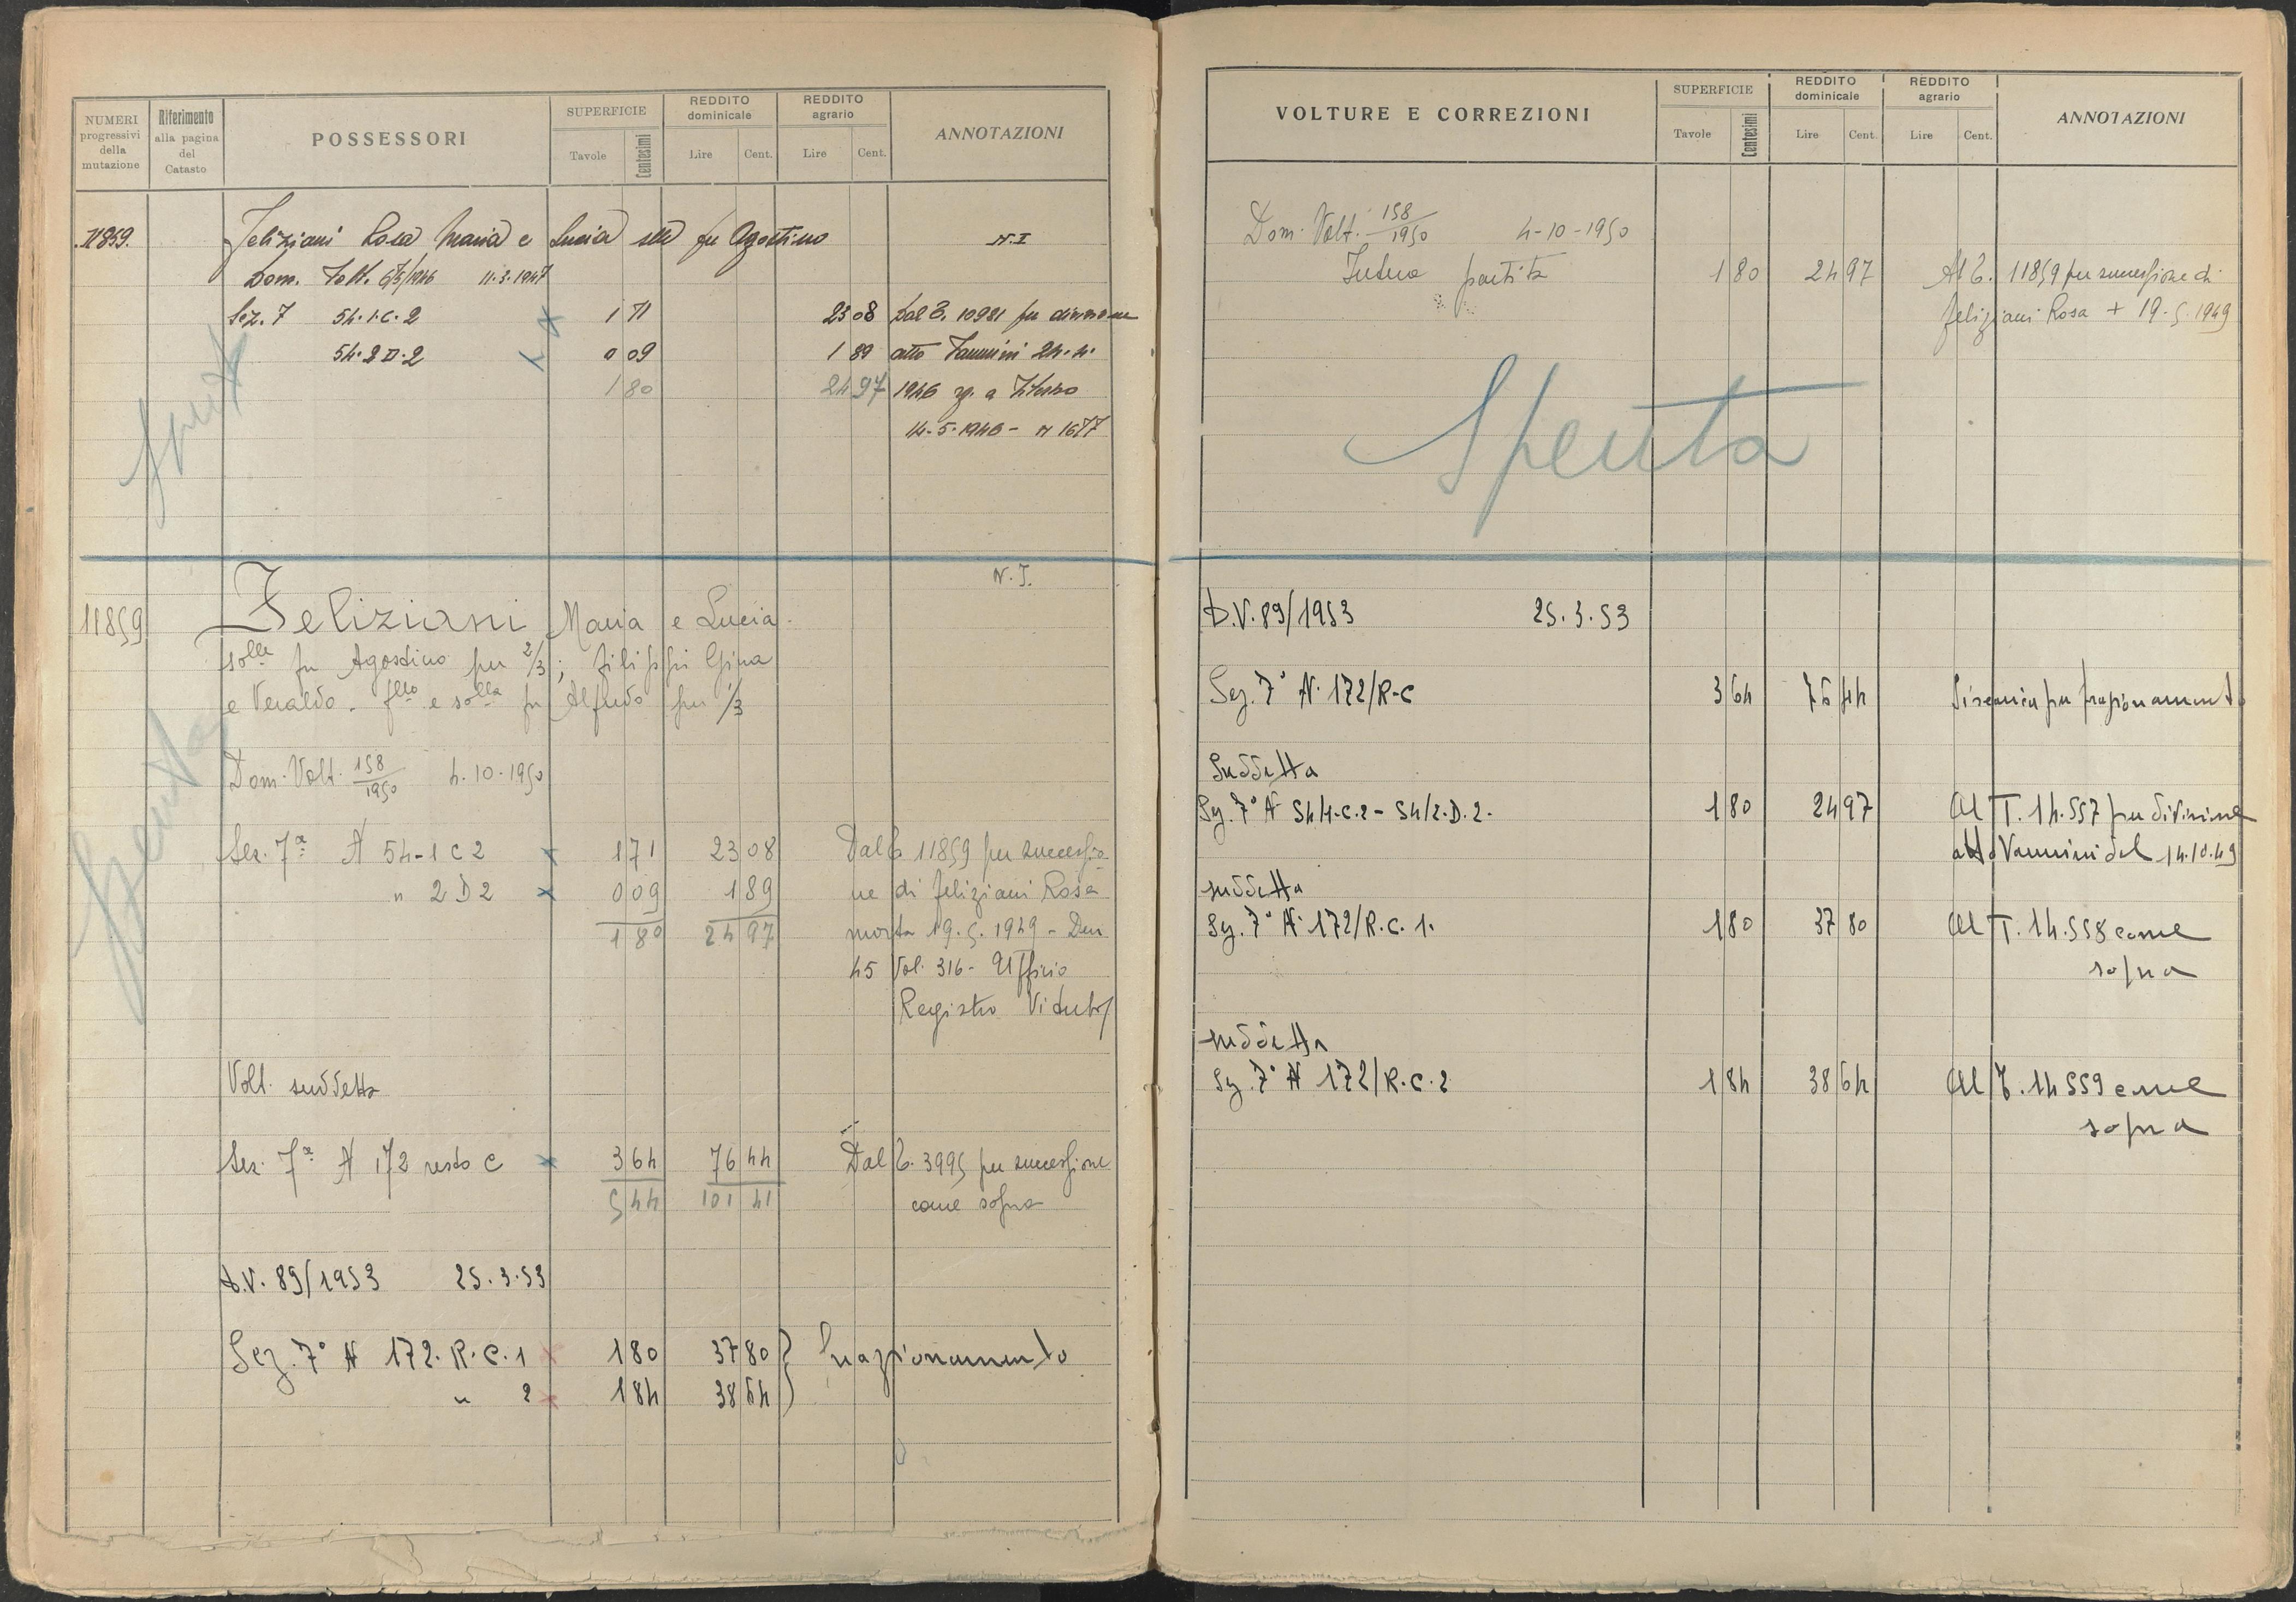 NUMERI progressivi della mutazione
Riferimento alla pagina del Catasto
POSSESSORI
SUPERFICIE
Tavole Centesimi
REDDITO dominicale
Lire Cent.
REDDITO agrario
Lire Cent.
ANNOTAZIONI
11859. Feliziani Rosa Maria e Lucia slle fu Agostino N.I
Dom. Volt. 1946 11.3.1947
Sez. 7 54.1.C.2 1 71 23 08 Dal T. 10981 per divisione
54.2 D.2 0 09 1 89 atto Vannini 24.4.
1 80 24 97 1946 rg. a
14-5-1946 - N 1677
Spenta
N.I.
11859 Feliziani Maria e Lucia
solle fu Agostino per 2/3; Filippi Gina
e Veraldo. fllo e solla fu Alfredo per 1/3
Dom. Volt. 158/1950 4.10.1950
Sez. 7a N 54-1 C 2 1 71 23 08 Dal T. 11859 per successio
" 2 D 2 0 09 1 89 ne di Feliziani Rosa
1 80 24 97 morta 19.5.1949 - Den
45 Vol. 316 - Ufficio
Registro
Spenta
Volt. suddetta
Sez. 7a N 172 resto C 3 64 76 44 Dal T. 3995 per successione
5 44 101 41 come sopra
D.V. 89/1953 25.3.53
Sez. 7° N 172. R.C.1 1 80 37 80 } Frazionamento
" 2 1 84 38 64
VOLTURE E CORREZIONI
SUPERFICIE
Tavole Centesimi
REDDITO dominicale
Lire Cent.
REDDITO agrario
Lire Cent.
ANNOTAZIONI
Dom. Volt. 158/1950 4-10-1950
Intera partita 1 80 24 97 Al T. 11859 per successione di
Feliziani Rosa + 19.5.1949
Spenta
D.V. 89/1953 25.3.53
Sez. 7° N. 172/R-C 3 64 76 44 Si scarica per frazionamento
Suddetta
Sez. 7° N 54/1.C.2 - 54/2.D.2. 1 80 24 97 Al T. 14.557 per divisione
atto Vannini del 14.10.49
suddetta
Sez. 7° N. 172/R.C.1. 1 80 37 80 Al T. 14.558 come
sopra
suddetta
Sez. 7° N 172/R.C.2 1 84 38 64 Al T. 14559 come
sopra